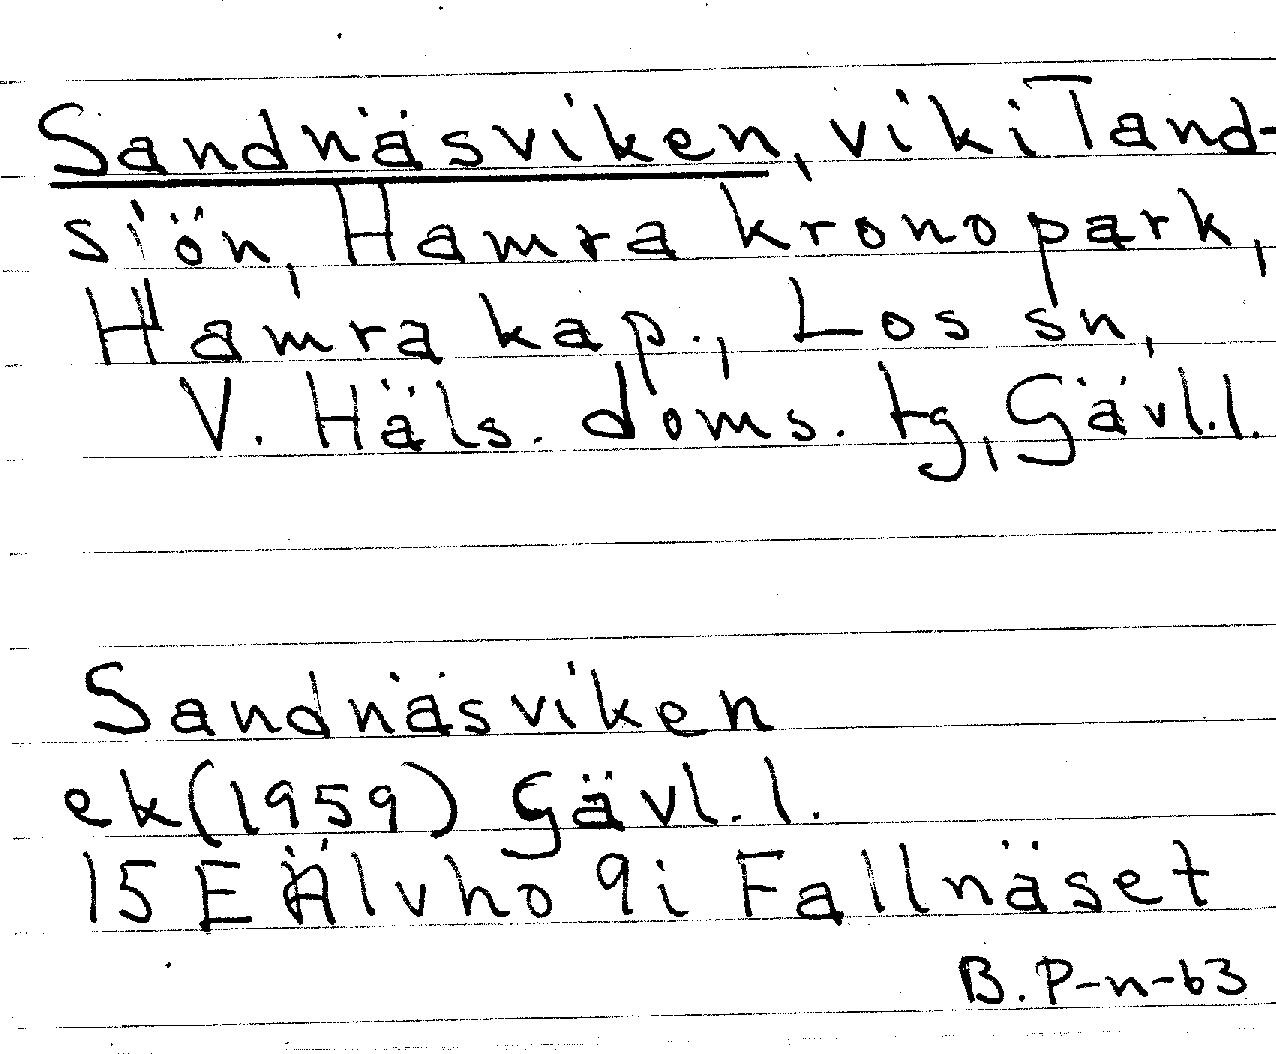 Sandnäsviken, vik i Tand-
sjön, Hamra kronopark,
Hamra kap., Los sn,
V. Häls. doms. tg, Gävl.l.
Sandnäsviken
ek(1959) Gävl.l.
15E Älvho 9i Fallnäset
B.P-n-63